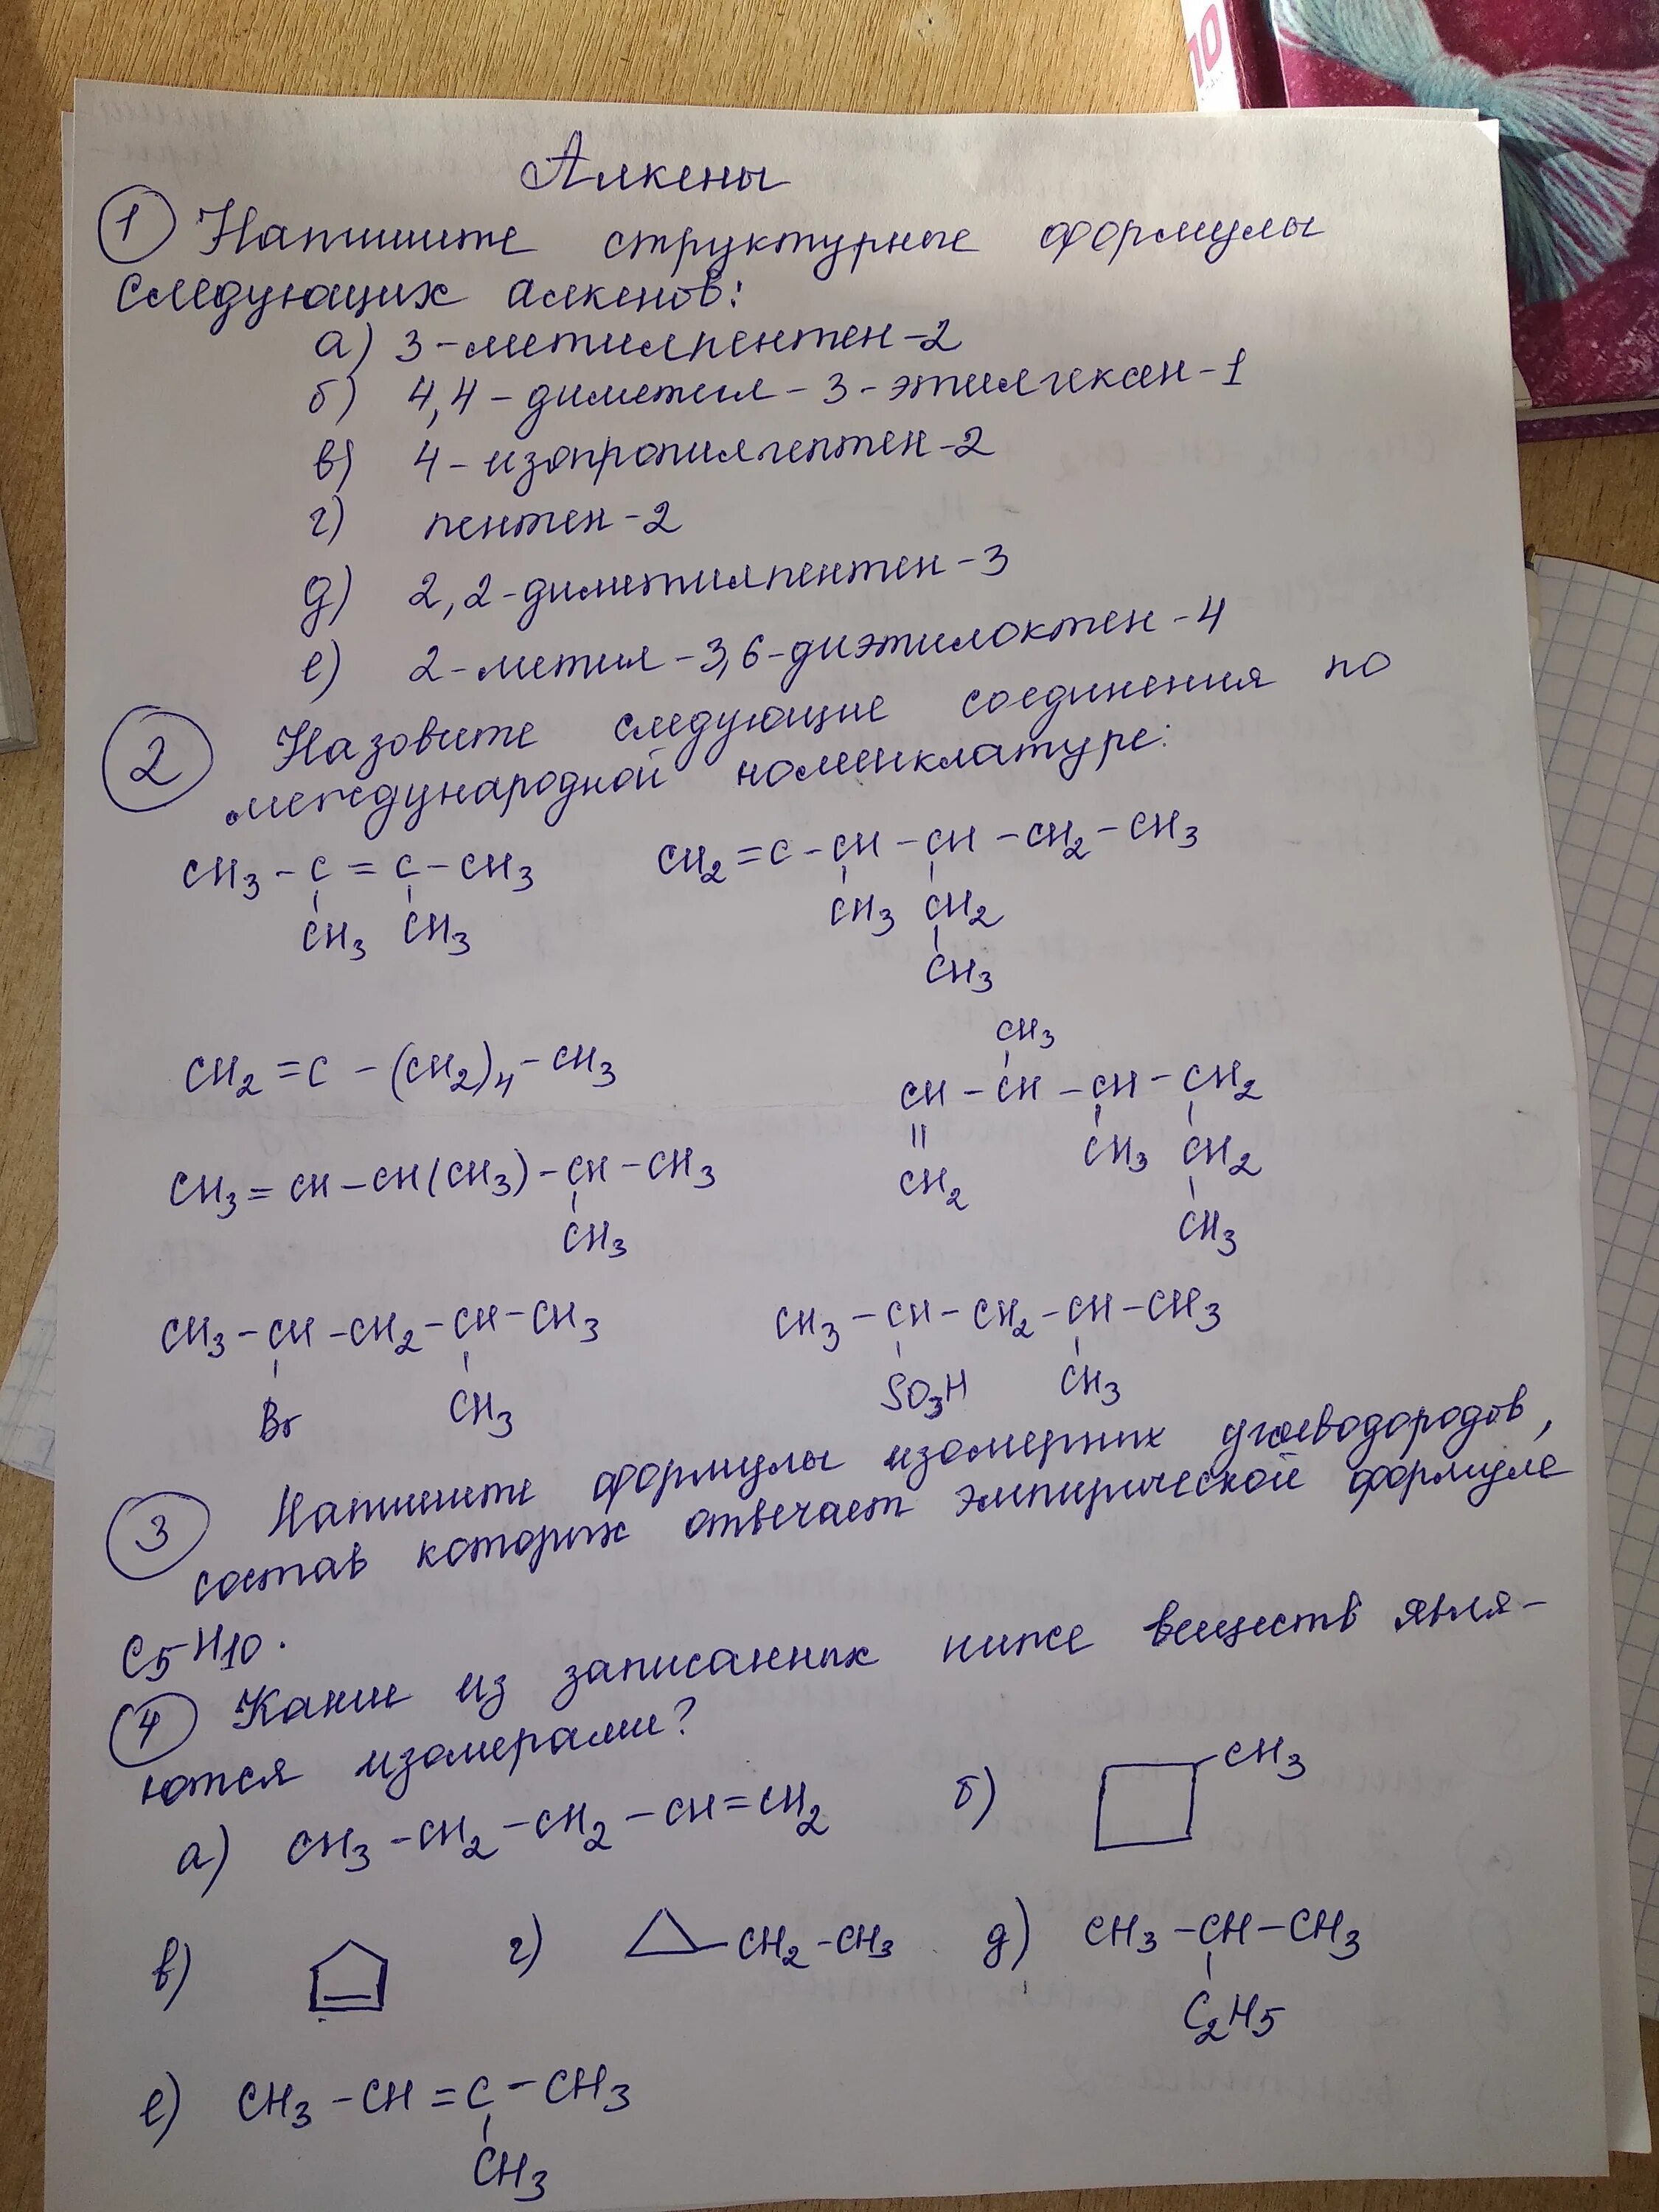 10
Алкены
1 Напишите структурные формулы
следующих алкенов:
а) 3-метилпентен-2
б) 4,4-диметил-3-этилгексен-1
в) 4-изопропилгептен-2
г) пентен-2
д) 2,2-диметилпентен-3
е) 2-метил-3,6-диэтилоктен-4
2 Назовите следующие соединения по
международной номенклатуре:
CH3-C=C-CH3 CH2=C-CH-CH-CH2-CH3
CH3 CH3 CH3 CH2
CH3
CH3
CH2=C-(CH2)4-CH3 CH-CH-CH-CH2
CH3 CH2
CH3=CH-CH(CH3)-CH-CH3 CH2
CH3 CH3
CH3-CH-CH2-CH-CH3 CH3-CH-CH2-CH-CH3
Br CH3 SO3H CH3
3 Напишите формулы изомерных углеводородов,
состав которых отвечает эмпирической формуле
C5H10.
4 Какие из записанных ниже веществ явля-
ются изомерами?
а) CH3-CH2-CH2-CH=CH2 б) CH3
в) г) CH2-CH3 д) CH3-CH-CH3
C2H5
е) CH3-CH=C-CH3
CH3